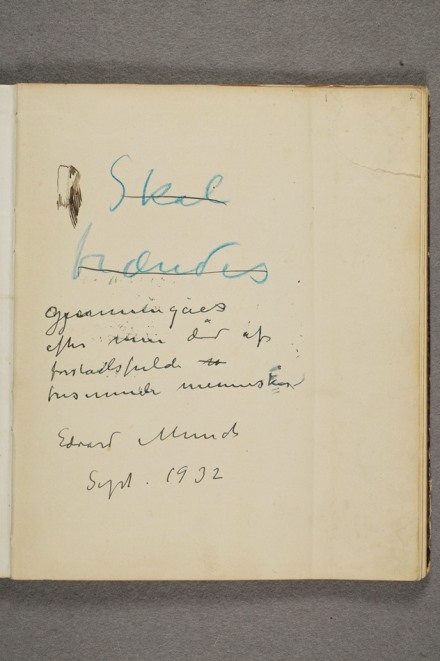 Skal
brændes
gjennemgaes
efter min död af
forstaaelsfulde
frisinnede mennesker
Edvard Munch
Sept. 1932